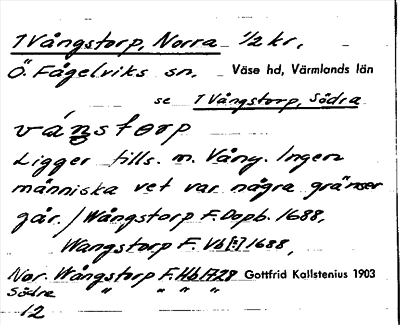 1 Vångstorp, Norra 1/2 kr,
Ö. Fågelviks sn, Väse hd, Värmlands län
se 1 Vångstorp, Södra
váŋstorp
Ligger tills. m. Vång. Ingen
människa vet var några gränser
går. / Wångstorp F. Dopb. 1688,
Wangstorp F. Vb[:] 1688,
Nor. Wångstorp F. Hb 1728 Gottfrid Kallstenius 1903
Södre " " " "
12